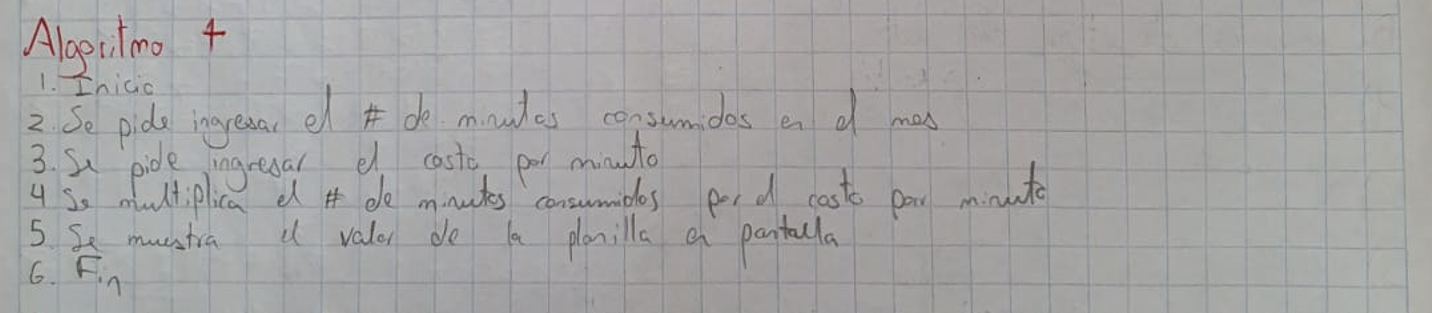 Algoritmo 4
1. Inicio
2. Se pide ingresar el # de minutos consumidos en el mes
3. Se pide ingresar el costo por minuto
4 Se multiplica el # de minutos consumidos por el costo por minuto
5. Se muestra el valor de la planilla en pantalla
6. Fin